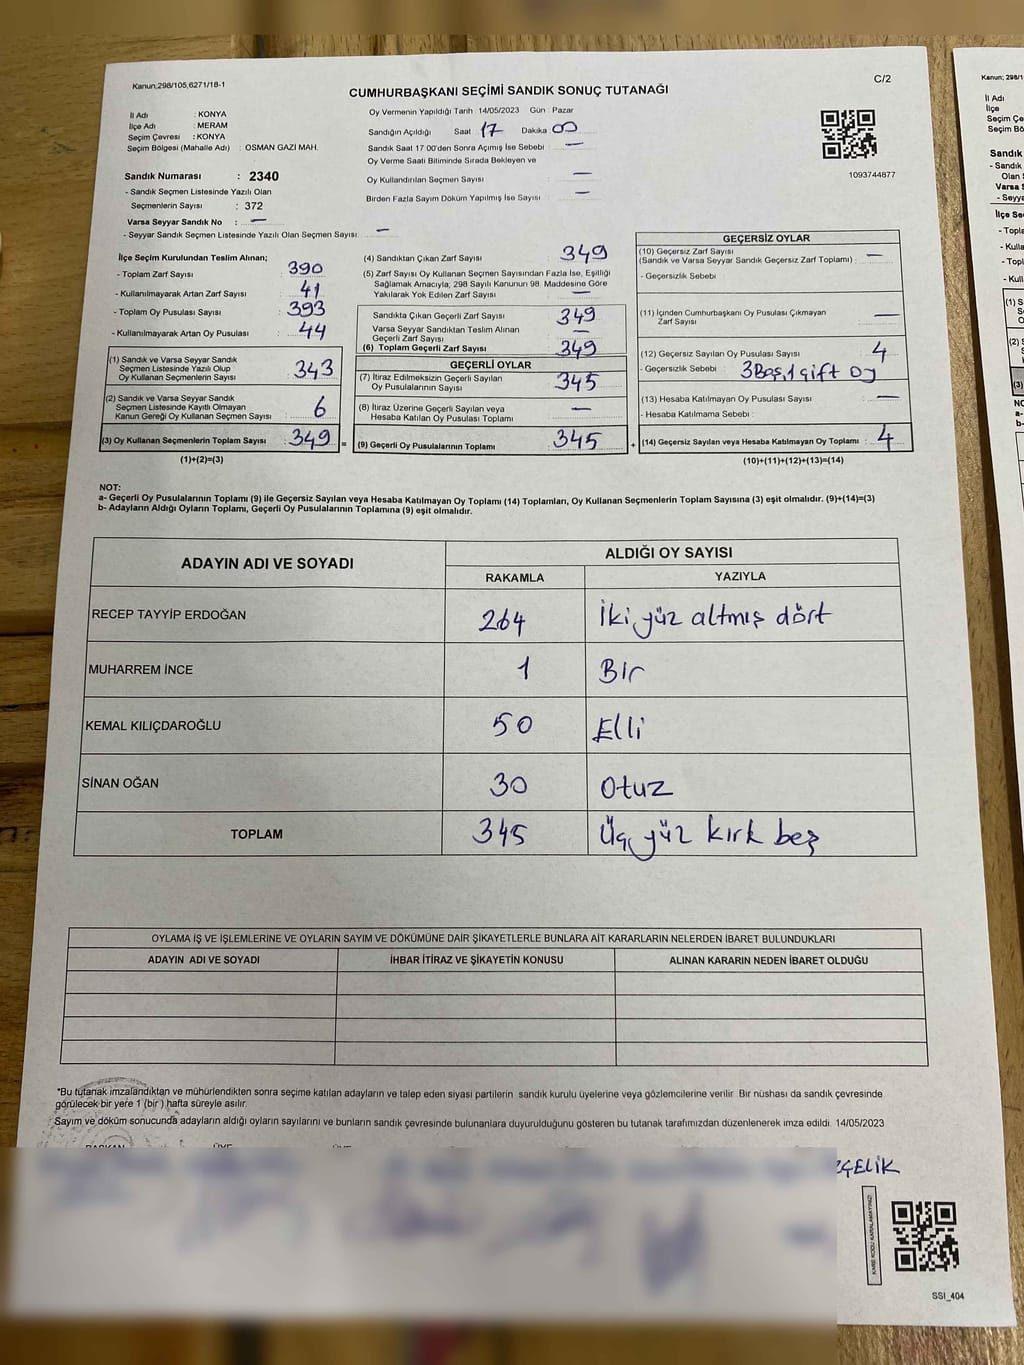 Kanun;298/105,6271/18-1
C/2
CUMHURBAŞKANI SEÇİMİ SANDIK SONUÇ TUTANAĞI
İl Adı : KONYA
İlçe Adı : MERAM
Seçim Çevresi : KONYA
Seçim Bölgesi (Mahalle Adı) : OSMAN GAZİ MAH.
Sandık Numarası : 2340
- Sandık Seçmen Listesinde Yazılı Olan
Seçmenlerin Sayısı : 372
Varsa Seyyar Sandık No : —
- Seyyar Sandık Seçmen Listesinde Yazılı Olan Seçmen Sayısı: —
Oy Vermenin Yapıldığı Tarih 14/05/2023 Gün : Pazar
Sandığın Açıldığı Saat 17 Dakika 00
Sandık Saat 17 00'den Sonra Açımış İse Sebebi : —
Oy Verme Saati Bitiminde Sırada Bekleyen ve
Oy Kullandırılan Seçmen Sayısı : —
Birden Fazla Sayım Döküm Yapılmış İse Sayısı : —
1093744877
İlçe Seçim Kurulundan Teslim Alınan;
- Toplam Zarf Sayısı : 390
- Kullanılmayarak Artan Zarf Sayısı : 41
- Toplam Oy Pusulası Sayısı : 393
- Kullanılmayarak Artan Oy Pusulası : 44
(1) Sandık ve Varsa Seyyar Sandık
Seçmen Listesinde Yazılı Olup
Oy Kullanan Seçmenlerin Sayısı : 343
(2) Sandık ve Varsa Seyyar Sandık
Seçmen Listesinde Kayıtlı Olmayan
Kanun Gereği Oy Kullanan Seçmen Sayısı : 6
(3) Oy Kullanan Seçmenlerin Toplam Sayısı : 349 =
(1)+(2)=(3)
(4) Sandıktan Çıkan Zarf Sayısı : 349
(5) Zarf Sayısı Oy Kullanan Seçmen Sayısından Fazla İse, Eşitliği
Sağlamak Amacıyla; 298 Sayılı Kanunun 98. Maddesine Göre
Yakılarak Yok Edilen Zarf Sayısı : —
Sandıkta Çıkan Geçerli Zarf Sayısı : 349
Varsa Seyyar Sandıktan Teslim Alınan
Geçerli Zarf Sayısı : —
(6) Toplam Geçerli Zarf Sayısı : 349
GEÇERLİ OYLAR
(7) İtiraz Edilmeksizin Geçerli Sayılan
Oy Pusulalarının Sayısı : 345
(8) İtiraz Üzerine Geçerli Sayılan veya
Hesaba Katılan Oy Pusulası Toplamı : —
(9) Geçerli Oy Pusulalarının Toplamı : 345 +
GEÇERSİZ OYLAR
(10) Geçersiz Zarf Sayısı
(Sandık ve Varsa Seyyar Sandık Geçersiz Zarf Toplamı) : —
- Geçersizlik Sebebi :
(11) İçinden Cumhurbaşkanı Oy Pusulası Çıkmayan
Zarf Sayısı : —
(12) Geçersiz Sayılan Oy Pusulası Sayısı : 4
- Geçersizlik Sebebi : 3 Boş, 1 çift oy
(13) Hesaba Katılmayan Oy Pusulası Sayısı : —
- Hesaba Katılmama Sebebi :
(14) Geçersiz Sayılan veya Hesaba Katılmayan Oy Toplamı : 4
(10)+(11)+(12)+(13)=(14)
NOT:
a- Geçerli Oy Pusulalarının Toplamı (9) ile Geçersiz Sayılan veya Hesaba Katılmayan Oy Toplamı (14) Toplamları, Oy Kullanan Seçmenlerin Toplam Sayısına (3) eşit olmalıdır. (9)+(14)=(3)
b- Adayların Aldığı Oyların Toplamı, Geçerli Oy Pusulalarının Toplamına (9) eşit olmalıdır.
ADAYIN ADI VE SOYADI
ALDIĞI OY SAYISI
RAKAMLA YAZIYLA
RECEP TAYYİP ERDOĞAN 264 İki yüz altmış dört
MUHARREM İNCE 1 Bir
KEMAL KILIÇDAROĞLU 50 Elli
SİNAN OĞAN 30 Otuz
TOPLAM 345 Üç yüz kırk beş
OYLAMA İŞ VE İŞLEMLERİNE VE OYLARIN SAYIM VE DÖKÜMÜNE DAİR ŞİKAYETLERLE BUNLARA AİT KARARLARIN NELERDEN İBARET BULUNDUKLARI
ADAYIN ADI VE SOYADI İHBAR İTİRAZ VE ŞİKAYETİN KONUSU ALINAN KARARIN NEDEN İBARET OLDUĞU
*Bu tutanak imzalandıktan ve mühürlendikten sonra seçime katılan adayların ve talep eden siyasi partilerin sandık kurulu üyelerine veya gözlemcilerine verilir. Bir nüshası da sandık çevresinde
görülecek bir yere 1 (bir ) hafta süreyle asılır.
Sayım ve döküm sonucunda adayların aldığı oyların sayılarını ve bunların sandık çevresinde bulunanlara duyurulduğunu gösteren bu tutanak tarafımızdan düzenlenerek imza edildi. 14/05/2023
ÇELİK
KARE KODU KARALAMAYINIZ!
SSI_404
Kanun; 298/1
İl Adı
İlçe
Seçim Çe
Seçim Bö
Sandık
- Sandık
Olan
Varsa
- Seyya